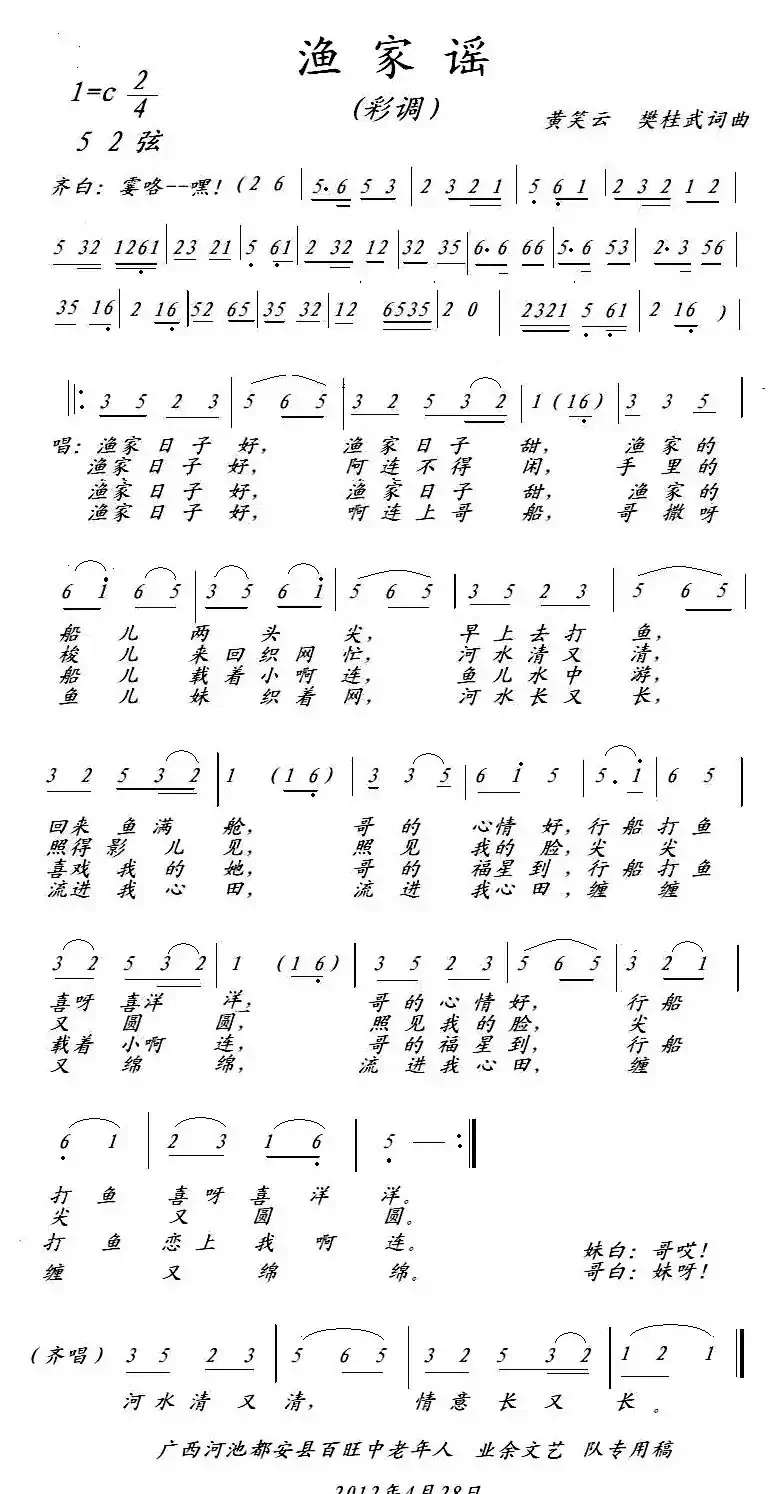 渔家谣
1=c 2/4
(彩调)
5 2 弦
黄笑云 樊桂武词曲
齐白：霎咯--嘿！( 2 6 | 5· 6 5 3 | 2 3 2 1 | 5 6 1 | 2 3 2 1 2 |
5 32 1261 | 23 21 | 5 61 | 2 32 12 | 32 35 | 6· 6 66 | 5· 6 53 | 2· 3 56 |
35 16 | 2 16 | 52 65 | 35 32 | 12 6535 | 2 0 | 2321 5 61 | 2 16 ) |
‖: 3 5 2 3 | 5 6 5 | 3 2 5 3 2 | 1 ( 16 ) | 3 3 5
唱：渔家日子好， 渔家日子甜， 渔家的
渔家日子好， 阿连不得闲， 手里的
渔家日子好， 渔家日子甜， 渔家的
渔家日子好， 啊连上哥船， 哥撒呀
6 i 6 5 | 3 5 6 i | 5 6 5 | 3 5 2 3 | 5 6 5 |
船儿两头尖， 早上去打鱼，
梭儿来回织网忙， 河水清又清，
船儿载着小啊连， 鱼儿水中游，
鱼儿妹织着网， 河水长又长，
3 2 5 3 2 | 1 ( 1 6 ) | 3 3 5 | 6 i 5 | 5· i | 6 5 |
回来鱼满舱， 哥的心情好，行船打鱼
照得影儿见， 照见我的脸，尖尖
喜戏我的她， 哥的福星到，行船打鱼
流进我心田， 流进我心田，缠缠
3 2 5 3 2 | 1 ( 1 6 ) | 3 5 2 3 | 5 6 5 | 3 2 1 |
喜呀喜洋洋， 哥的心情好， 行船
又圆圆， 照见我的脸， 尖
载着小啊连， 哥的福星到， 行船
又绵绵， 流进我心田， 缠
6 1 | 2 3 1 6 | 5 — :‖
打鱼喜呀喜洋洋。
尖又圆圆。
打鱼恋上我啊连。
妹白：哥哎！
缠又绵绵。
哥白：妹呀！
(齐唱) 3 5 2 3 | 5 6 5 | 3 2 5 3 2 | 1 2 1 ‖
河水清又清， 情意长又长。
广西河池都安县百旺中老年人 业余文艺 队专用稿
2012年4月28日